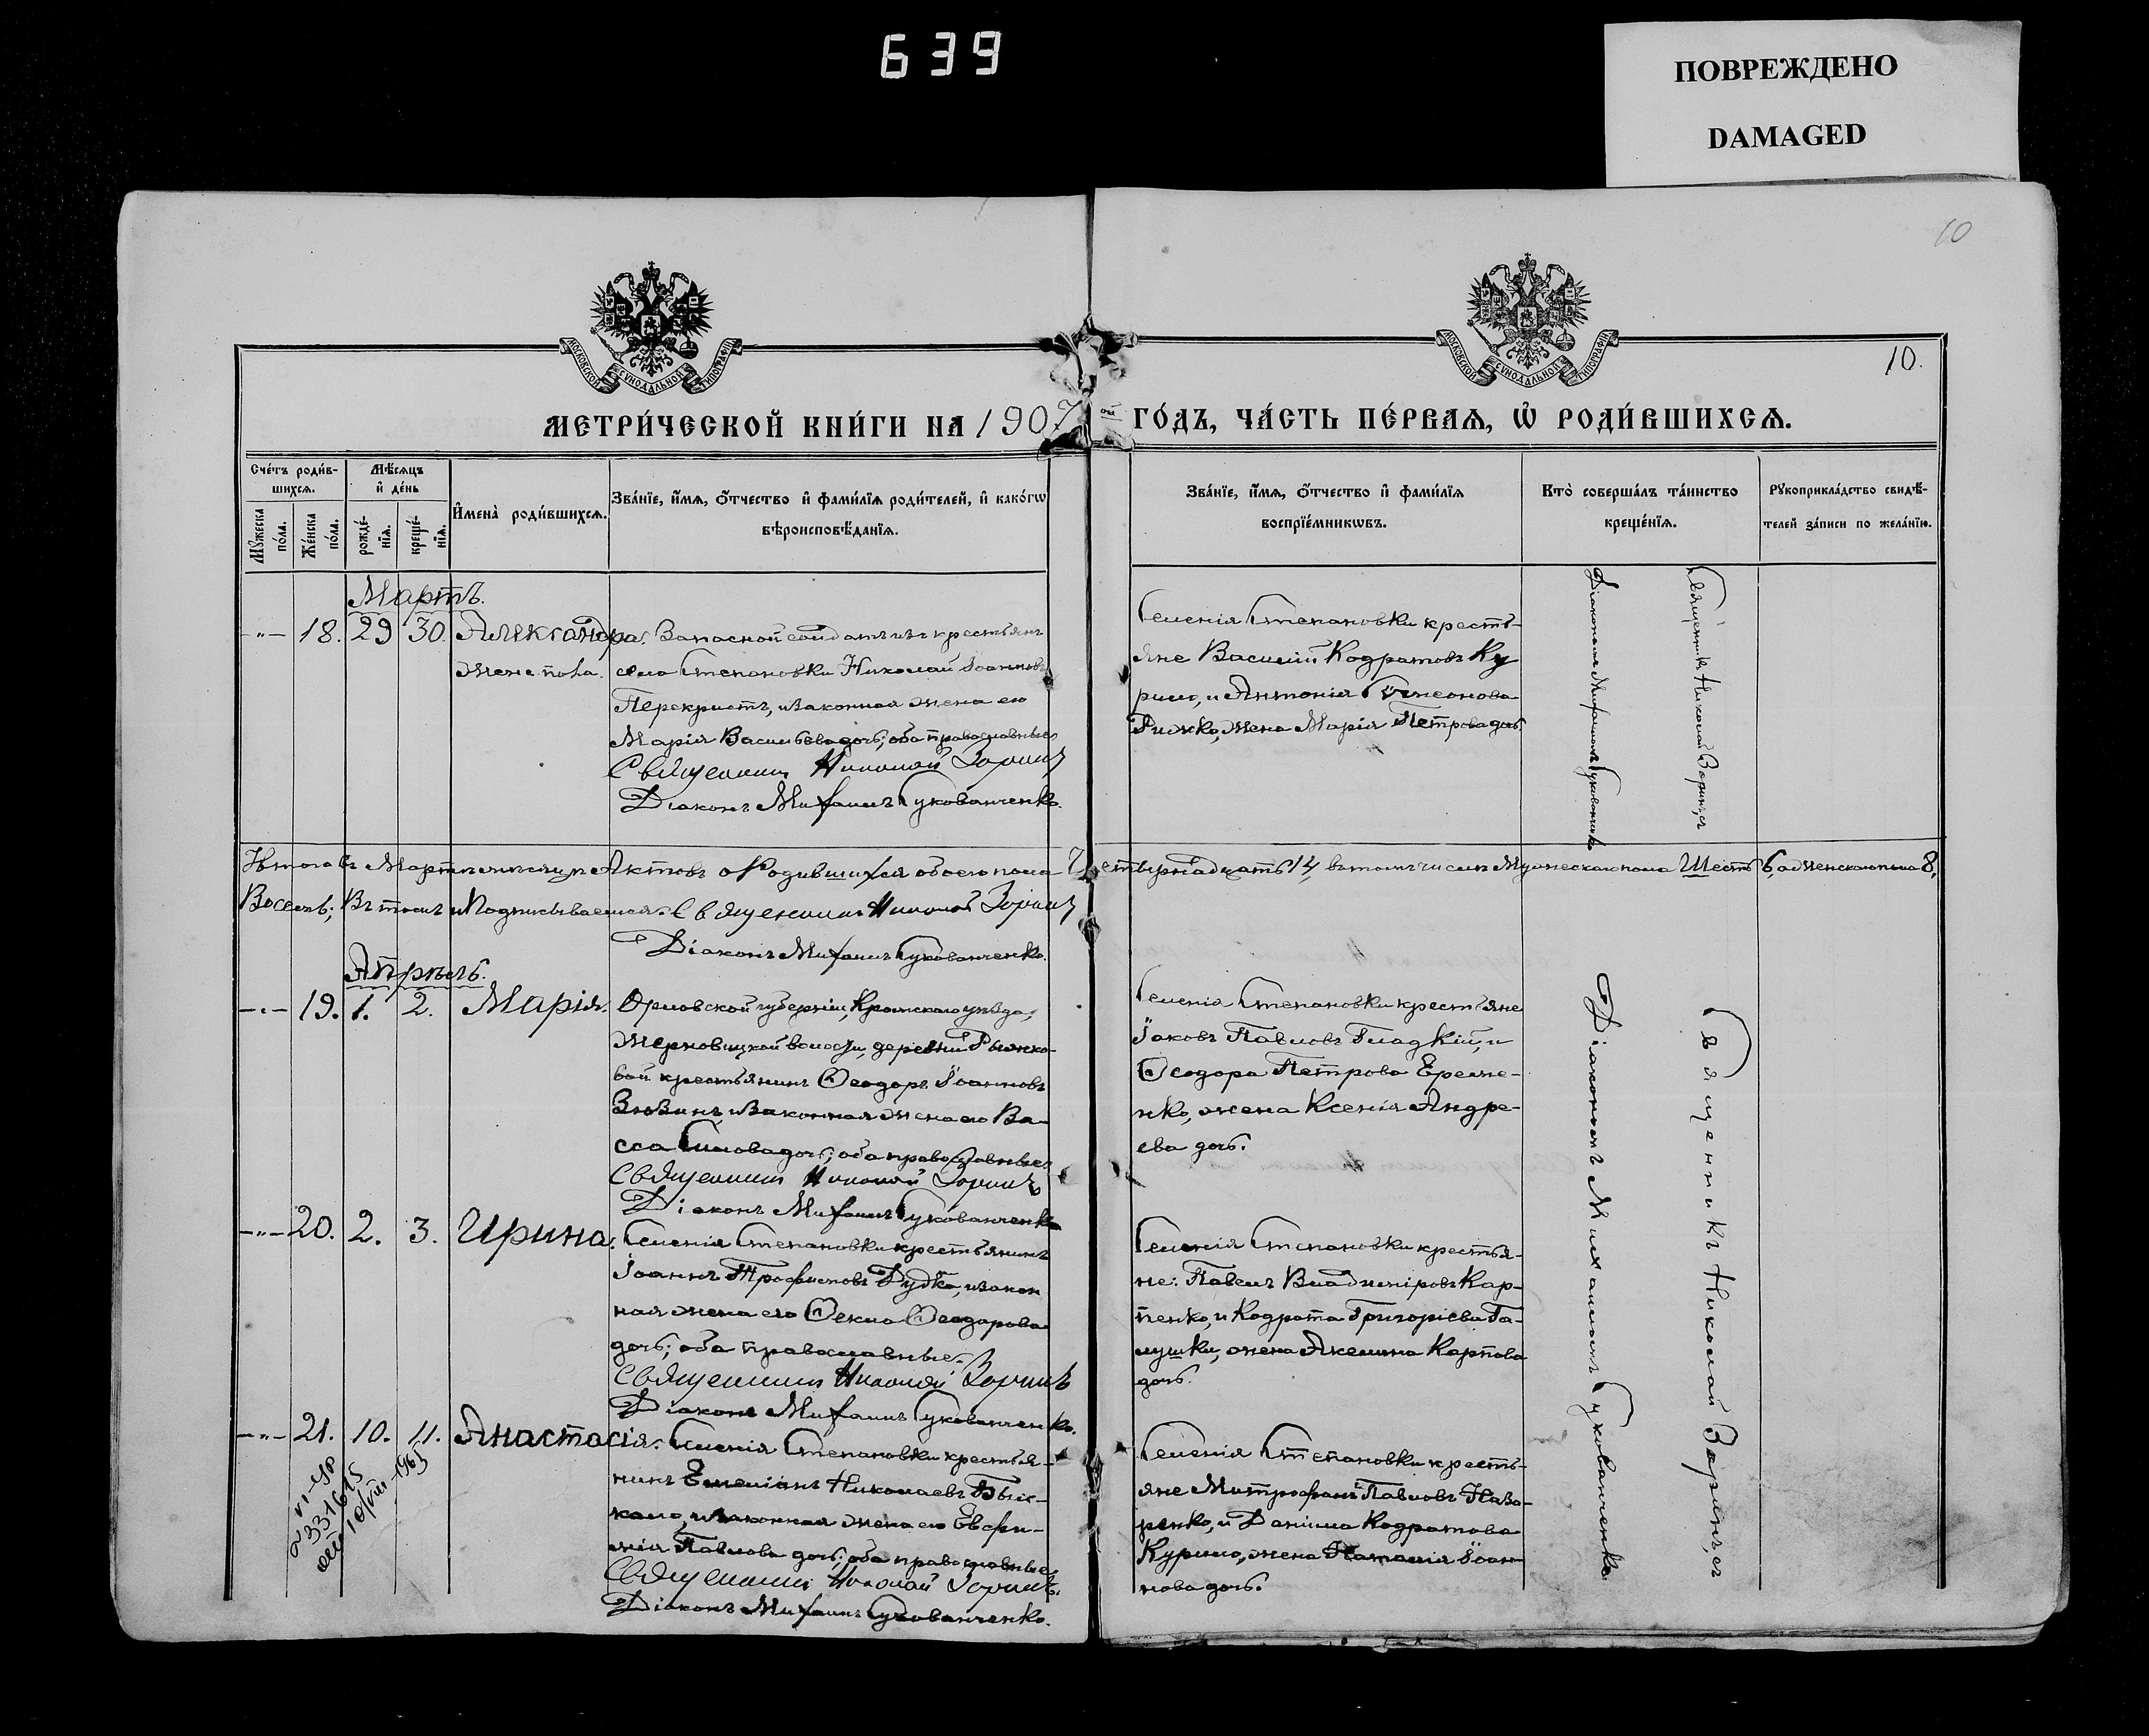 639
ПОВРЕЖДЕНО
DAMAGED
10
10.
МОСКОВСКОЙ СѴНОДАЛЬНОЙ ТИПОГРАФІИ
МОСКОВСКОЙ СѴНОДАЛЬНОЙ ТИПОГРАФІИ
МЕТРИ́ЧЕСКОЙ КНИ́ГИ НА 1907 ой ГО́ДЪ, ЧА́СТЬ ПЕ́РВАѦ, Ѡ҆ РОДИ́ВШИХСѦ.
Сче́тъ роди́в-
шихсѧ.
Мѣ́сѧцъ
и҆ де́нь
Мꙋ́жеска по́ла.
Же́нска по́ла.
рожде́-нїѧ.
креще́-нїѧ.
И҆мена̀ роди́вшихсѧ.
Зва́нїе, и҆́мѧ, ѻ҆́тчество и҆ фами́лїѧ роди́телей, и҆ како́гѡ
вѣроисповѣ́данїѧ.
Зва́нїе, и҆́мѧ, ѻ҆́тчество и҆ фами́лїѧ
воспрїе́мникѡвъ.
Кто̀ соверша́лъ та́инство
креще́нїѧ.
Рꙋкоприкла́дство свидѣ́-
телей за́писи по жела́нїю.
Мартъ.
-"- 18. 29 30. Александра. Запасной солдатъ изъ крестьянъ
жене пола. села Степановки Николай Іоанновъ
Перекристъ, и законная жена его
Марія Васильева дочь; оба православные
Священникъ Николай Зоринъ
Діаконъ Михаилъ Сукованченко.
Селенія Степановки кресть-
яне Василій Кодратовъ Ку
рило, и Антонія Симеонова
Рижко, жена Марія Петрова дочь.
Священникъ Николай Зоринъ, съ
Діакономъ Михаиломъ Сукованченко
Итого въ Мартѣ мѣсяцѣ Актовъ о Родившихся обоего пола Четырнадцать 14, въ томъ числѣ Мужескаго пола Шесть 6, а женскаго пола 8,
Восемь; Въ томъ и Подписываемся: Священникъ Николай Зоринъ
Діаконъ Михаилъ Сукованченко.
Апрѣль.
-"- 19. 1. 2. Марія. Орловской губерніи, Кромскаго уѣзда,
волости, деревни Рыжко-
вой крестьянинъ Ѳеодоръ Іоанновъ
Зюзинъ, и законная жена его Ва-
сса Силова дочь; оба православные.
Священникъ Николай Зоринъ
Діаконъ Михаилъ Сукованченко
Селенія Степановки крестьяне
Іаковъ Павловъ Гладкій, и
Ѳеодора Петрова Еремe-
нко, жена Ксенія Андре-
ева дочь.
-"- 20. 2. 3. Ирина. Селенія Степановки крестьянинъ
Іоаннъ Трофимовъ Дудка, и закон
ная жена его Ѳекла Ѳеодорова
дочь; оба православные.
Священникъ Николай Зоринъ
Діаконъ Михаилъ Сукованченко.
Селенія Степановки крестья-
не: Павелъ Владиміровъ Кар-
пенко, и Кодрата Григоріева Га-
лушки, жена Акелина Карпова
дочь.
-"- 21. 10. 11. Анастасія. Селенія Степановки крестья-
нинъ Емеліанъ Николаевъ
и законная жена его Евфи-
мія Павлова дочь; оба православные.
Священникъ Николай Зоринъ.
Діаконъ Михаилъ Сукованченко.
Селенія Степановки кресть-
яне Митрофанъ Павловъ Наза-
ренко, и Даніила Кодратова
Курило, жена Наталія Іоан-
нова дочь.
Священникъ Николай Зоринъ, съ
Діакономъ Михаиломъ Сукованченко.
331625
10/VIII-1965